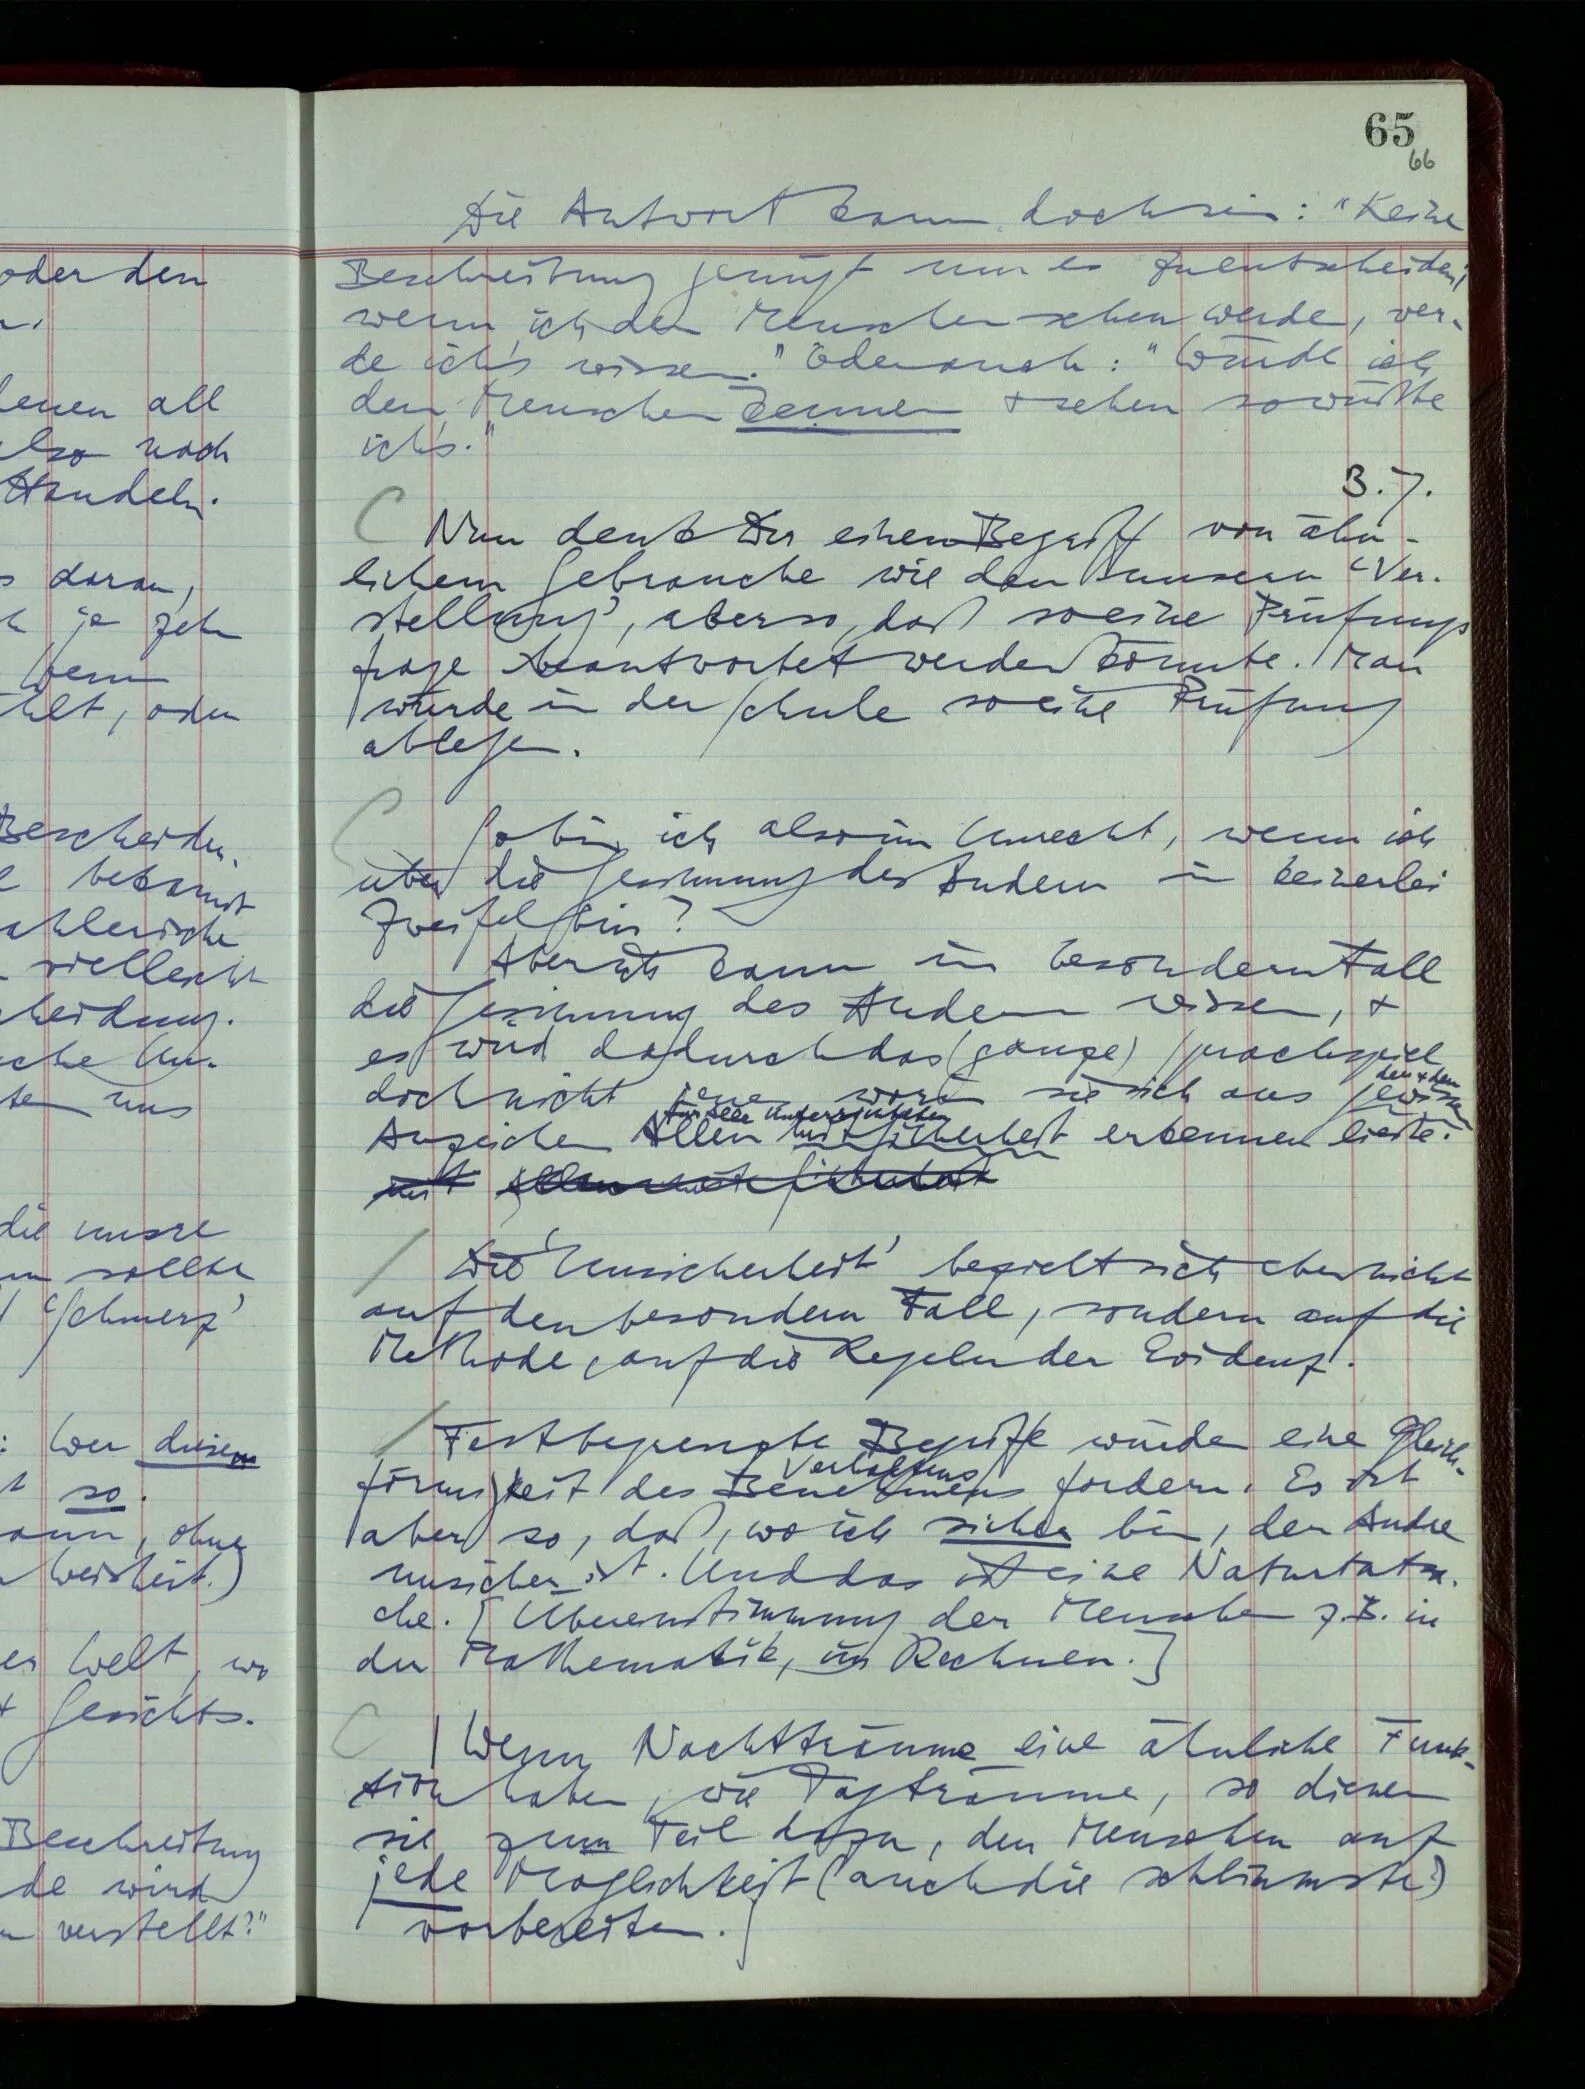 oder den
n.
denen all
also noch
Handeln.
s daran,
h je zehn
wenn
hlt, oder
Bescheiden.
e bekannt
ahlerische
n vielleicht
heidung.
sche Un-
ten uns
die unsre
en sollte
'Schmerz'
: Wer diesem
t so.
ann, ohne
Weisheit.)
er Welt, wo
+ Gesichts-
Beschreibung
de wird
n verstellt?"
65
66
Die Antwort kann doch sein: "Keine
Beschreibung genügt um es zu entscheiden;
wenn ich den Menschen sehen werde, wer-
de ich's wissen." Oder auch: "Würde ich
den Menschen kennen + sehen so wüßte
ich's."
3.7.
Nun denk Dir einen Begriff von ähn-
lichem Gebrauche wie den unsern 'Ver-
stellung', aber so, daß so eine Prüfungs
frage beantwortet werden könnte. Man
würde in der Schule so eine Prüfung
ablegen.
So bin ich also im Unrecht, wenn ich
über die Gesinnung des Andern in keinerlei
Zweifel bin?
Aber ich kann im besondern Fall
die Gesinnung des Andern wissen, +
es wird dadurch das (ganze) Sprachspiel
doch nicht jene, worin sie sich aus gewissen
den + den
für alle Unterrichteten
Anzeichen Allen mit Sicherheit erkennen ließe.
mit
Die 'Unsicherheit' bezieht sich eben nicht
auf den besondern Fall, sondern auf die
Methode, auf die Regeln der Evidenz.
Festbegrenzte Begriffe würden eine Gleich-
Verhaltens
förmigkeit des Benehmens fordern. Es ist
aber so, daß, wo ich sicher bin, der Andre
unsicher ist. Und das ist eine Naturtatsa-
che. [Übereinstimmung der Menschen z.B. in
der Mathematik, im Rechnen.]
|Wenn Nachtträume eine ähnliche Funk-
tion haben, wie Tagträume, so dienen
sie zum Teil dazu, den Menschen auf
jede Möglichkeit (auch die schlimmste)
vorbereiten.